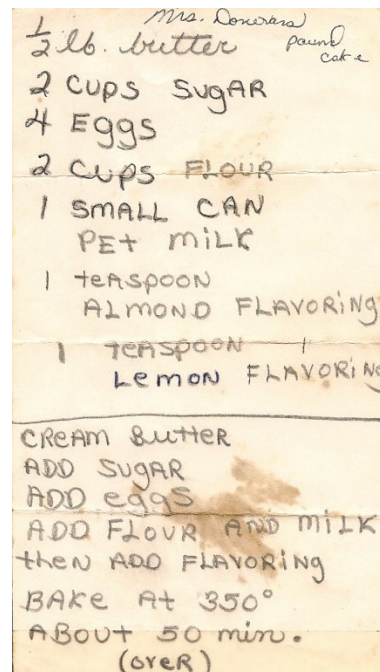 Mrs.
pound
cake
1/2 lb. butter
2 CUPS SUGAR
4 EGGS
2 CUPS FLOUR
1 SMALL CAN
PET MILK
1 teASPOON
ALMOND FLAVORING
1 teASPOON
Lemon FLAVORING
CREAM Butter
ADD SUGAR
ADD eggs
ADD FLOUR AND MILK
then ADD FLAVORING
BAKE At 350°
ABout 50 min.
(oveR)